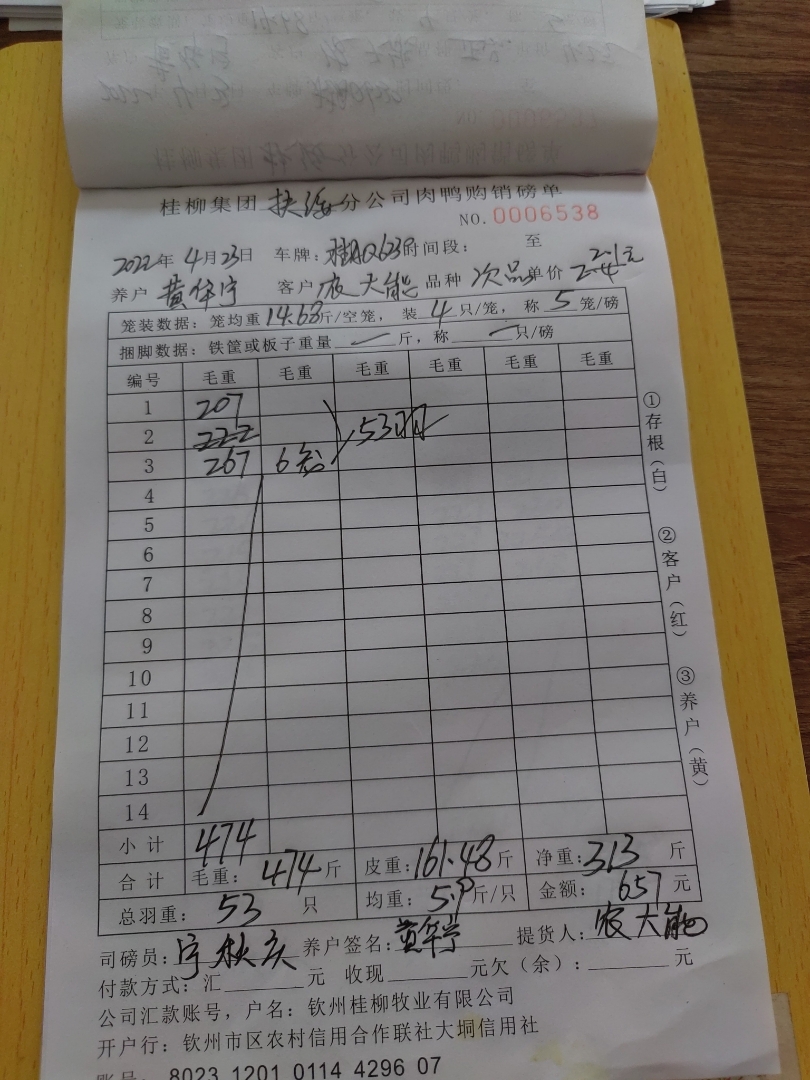 桂柳集团 分公司肉鸭购销磅单
NO. 0006538
2022年 4月23日 车牌: 时间段: 至
养户 黄华宁 客户 农大能 品种 次品 单价 2.1元
2.4
笼装数据: 笼均重14.68斤/空笼, 装 4 只/笼, 称 5 笼/磅
捆脚数据: 铁筐或板子重量 — 斤, 称 — 只/磅
编号 毛重 毛重 毛重 毛重 毛重 毛重
1 207
2 222 53羽
3 267 6
4
5
6
7
8
9
10
11
12
13
14
小计 474
合计 毛重: 474斤 皮重:161.48斤 净重:313 斤
总羽重: 53 只 均重: 5.9斤/只 金额: 657 元
司磅员:宁秋庆 养户签名:黄华宁 提货人:农大能
付款方式: 汇____元 收现____元欠(余):____元
公司汇款账号, 户名: 钦州桂柳牧业有限公司
开户行: 钦州市区农村信用合作联社大垌信用社
账号: 8023 1201 0114 4296 07
①存根(白)
②客户(红)
③养户(黄)